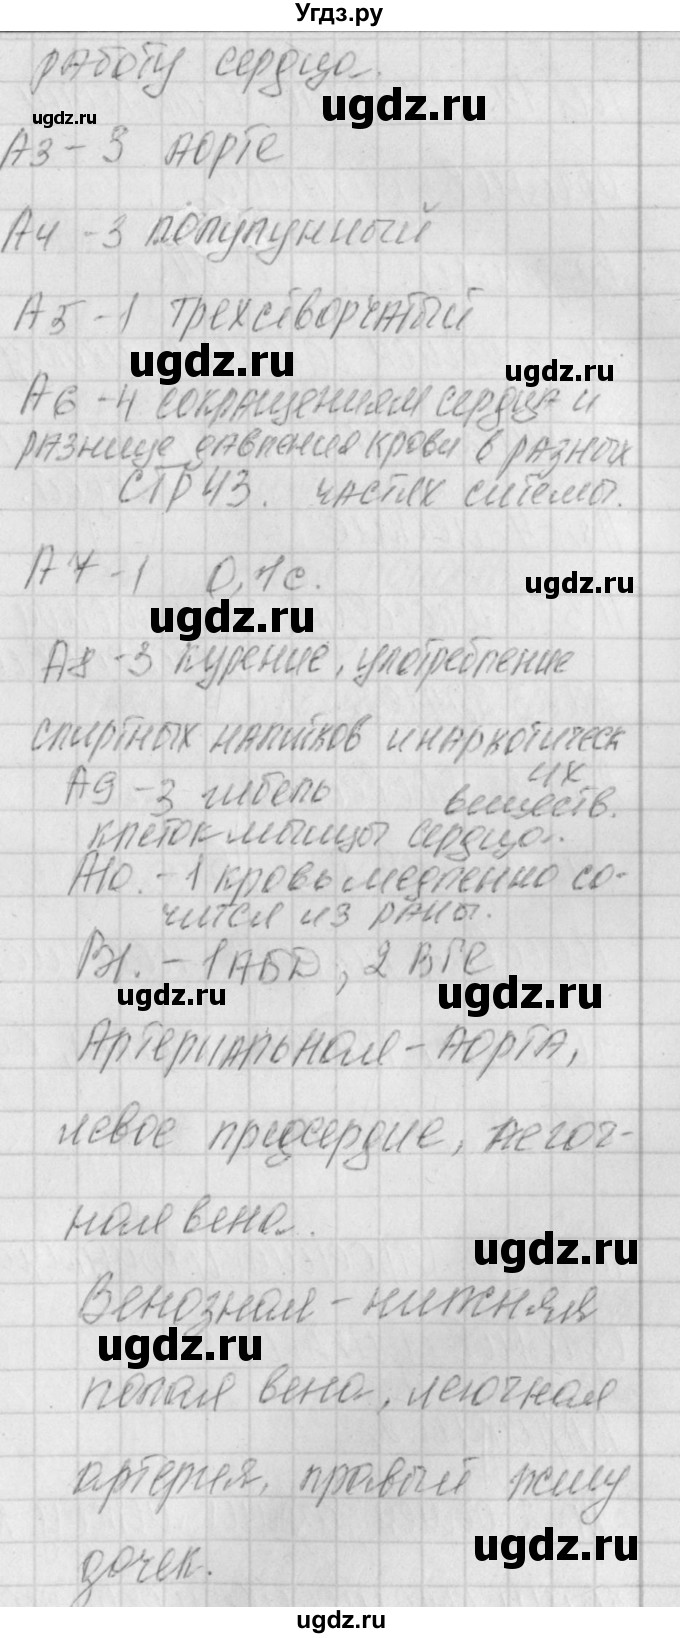 Угдз.ру
работу сердца.
ugdz.ru
ugdz.ru
А3 - 3 аорте
А4 - 3 полулунный
А5 - 1 трехстворчатый
ugdz.ru
ugdz.ru
А6 - 4 сокращением сердца и
разнице давления крови в разных
стр 43. частях ситемы.
А7 - 1 0,1с.
ugdz.ru
ugdz.ru
А8 - 3 курение, употребление
спиртных напитков и наркотическ
их
А9 - 3 гибель веществ.
клеток мышцы сердца.
А10. - 1 кровь медленно со-
чится из раны.
В1. - 1 АБД, 2 ВГЕ
ugdz.ru
ugdz.ru
Артериальная - аорта,
левое предсердие, легоч-
ная вена.
ugdz.ru
Венозная - нижняя
ugdz.ru
полая вена, легочная
артерия, правый желу
ugdz.ru
дочек.
ugdz.ru